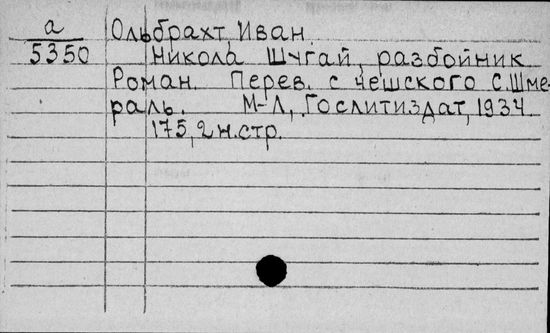 а Ольбрахт Иван
5350 Никола Шугай, разбойник
Роман. Перев. с чешского С. Шме-
раль. М-Л, Гослитиздат, 1934.
175, 2 н. стр.